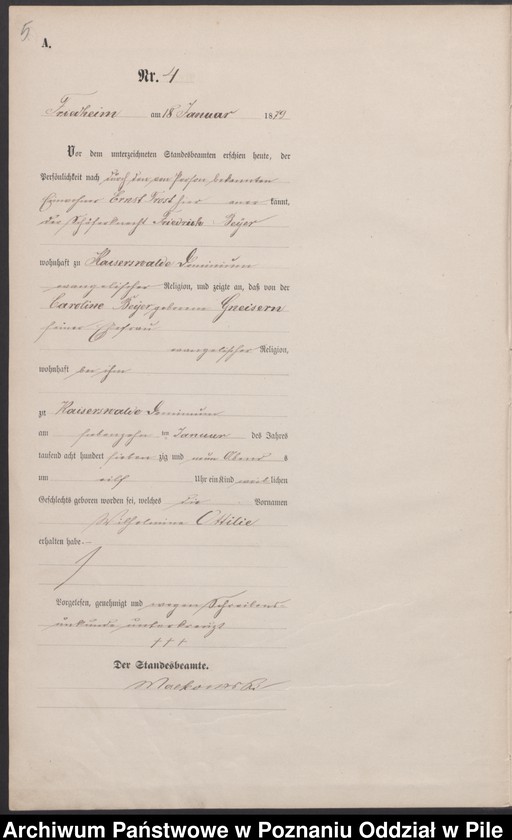 5
A.
Nr. 4
Friedheim am 18 Januar 1879
Vor dem unterzeichneten Standesbeamten erschien heute, der
Persönlichkeit nach durch den von Person bekannten
Einwohner Ernst Frost hier aner kannt,
der Schäferknecht Friedrich Beyer
wohnhaft zu Kaiserswalde Dominium
evangelischer Religion, und zeigte an, daß von der
Caroline Beyer geborene Gneisern
seiner Ehefrau
evangelischer Religion,
wohnhaft bei ihm
zu Kaiserswalde Dominium
am siebenzehn ten Januar des Jahres
tausend acht hundert sieben zig und neun Abend s
um eilf Uhr ein Kind weib lichen
Geschlechts geboren worden sei, welches die Vornamen
Wilhelmine Ottilie
erhalten habe.
Vorgelesen, genehmigt und wegen Schreibens-
unkunde unterkreuzt
+++
Der Standesbeamte.
Archiwum Państwowe w Poznaniu Oddział w Pile